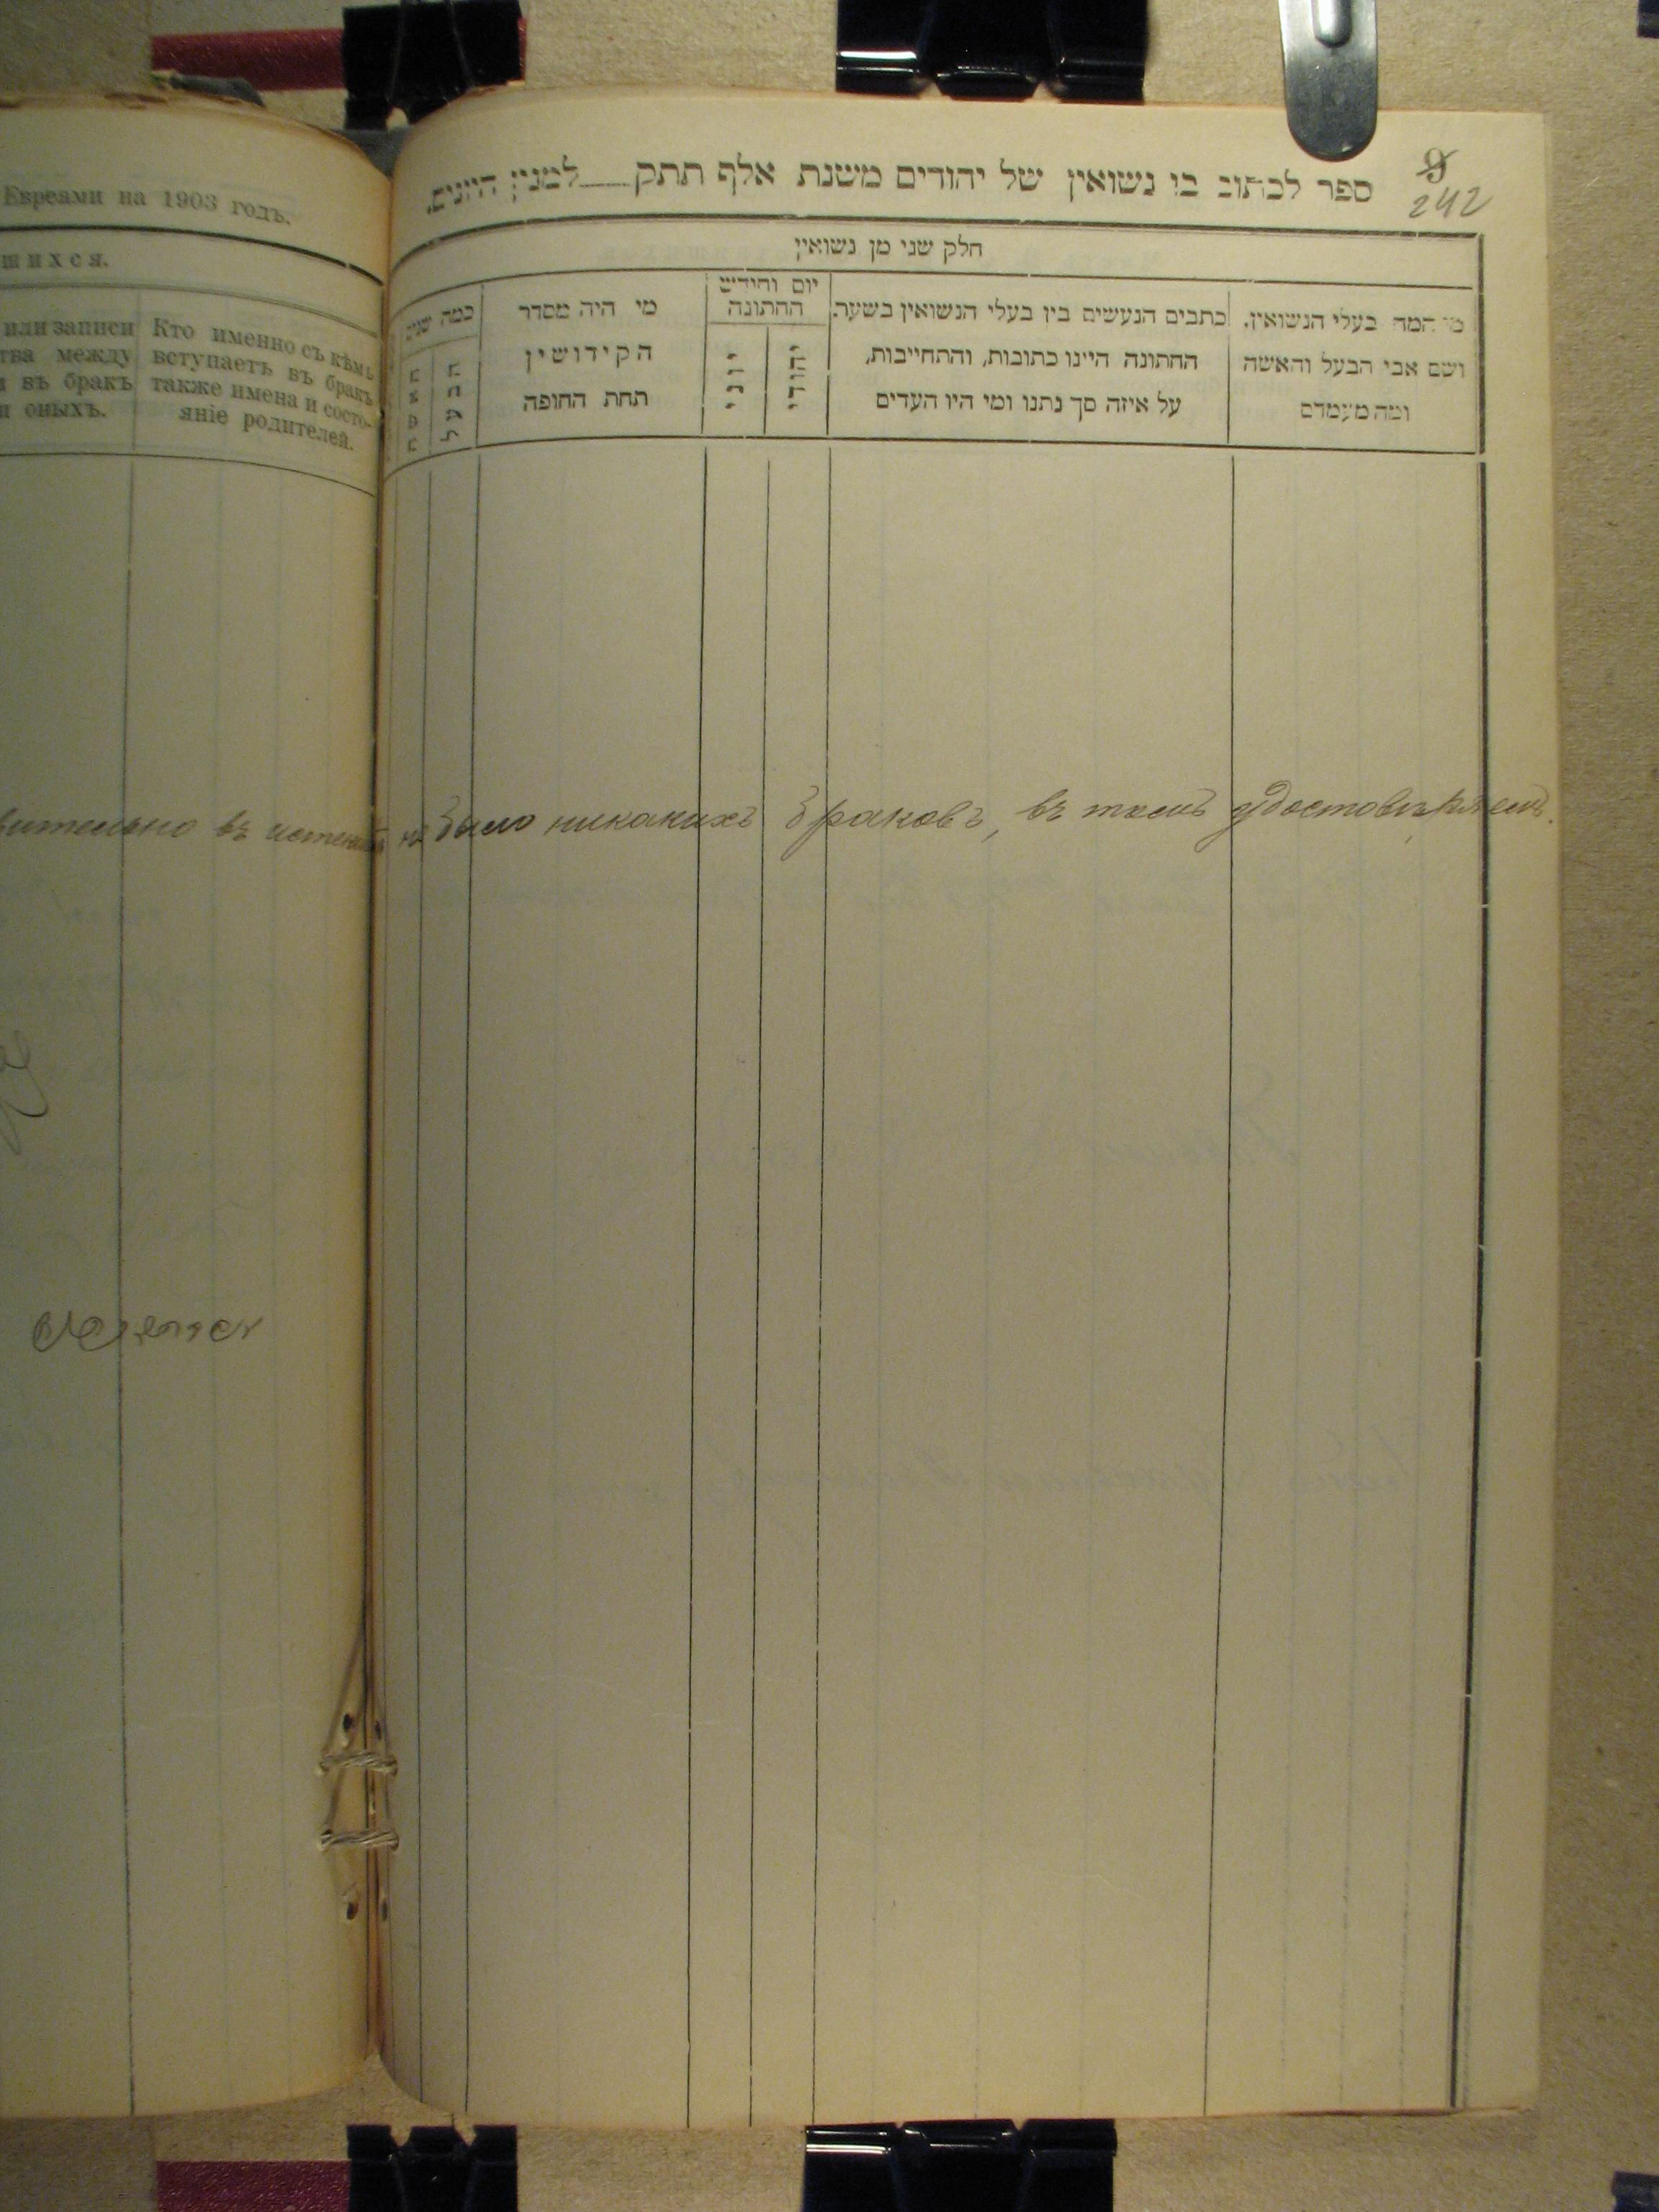 Евреами на 1903 годъ.
шихся.
или записи
тва между
и въ бракъ
и оныхъ.
Кто именно съ кѣмъ
вступаетъ въ бракъ
также имена и состо-
яніе родителей.
9
242
ספר לכתוב בו נשואין של יהודים משנת אלף תתק___למנין היונים.
חלק שני מן נשואין
מי המה בעלי הנשואין.
ושם אבי הבעל והאשה
ומה מעמדם
כתבים הנעשים בין בעלי הנשואין בשער.
החתונה היינו כתובות, והתחייבות,
על איזה סך נתנו ומי היו העדים
יום וחודש
החתונה
יהודי
יוני
מי היה מסדר
הקידושין
תחת החופה
כמה שנים
הבעל
האשה
вительно въ не было никакихъ браковъ, въ томъ удостовѣряемъ.